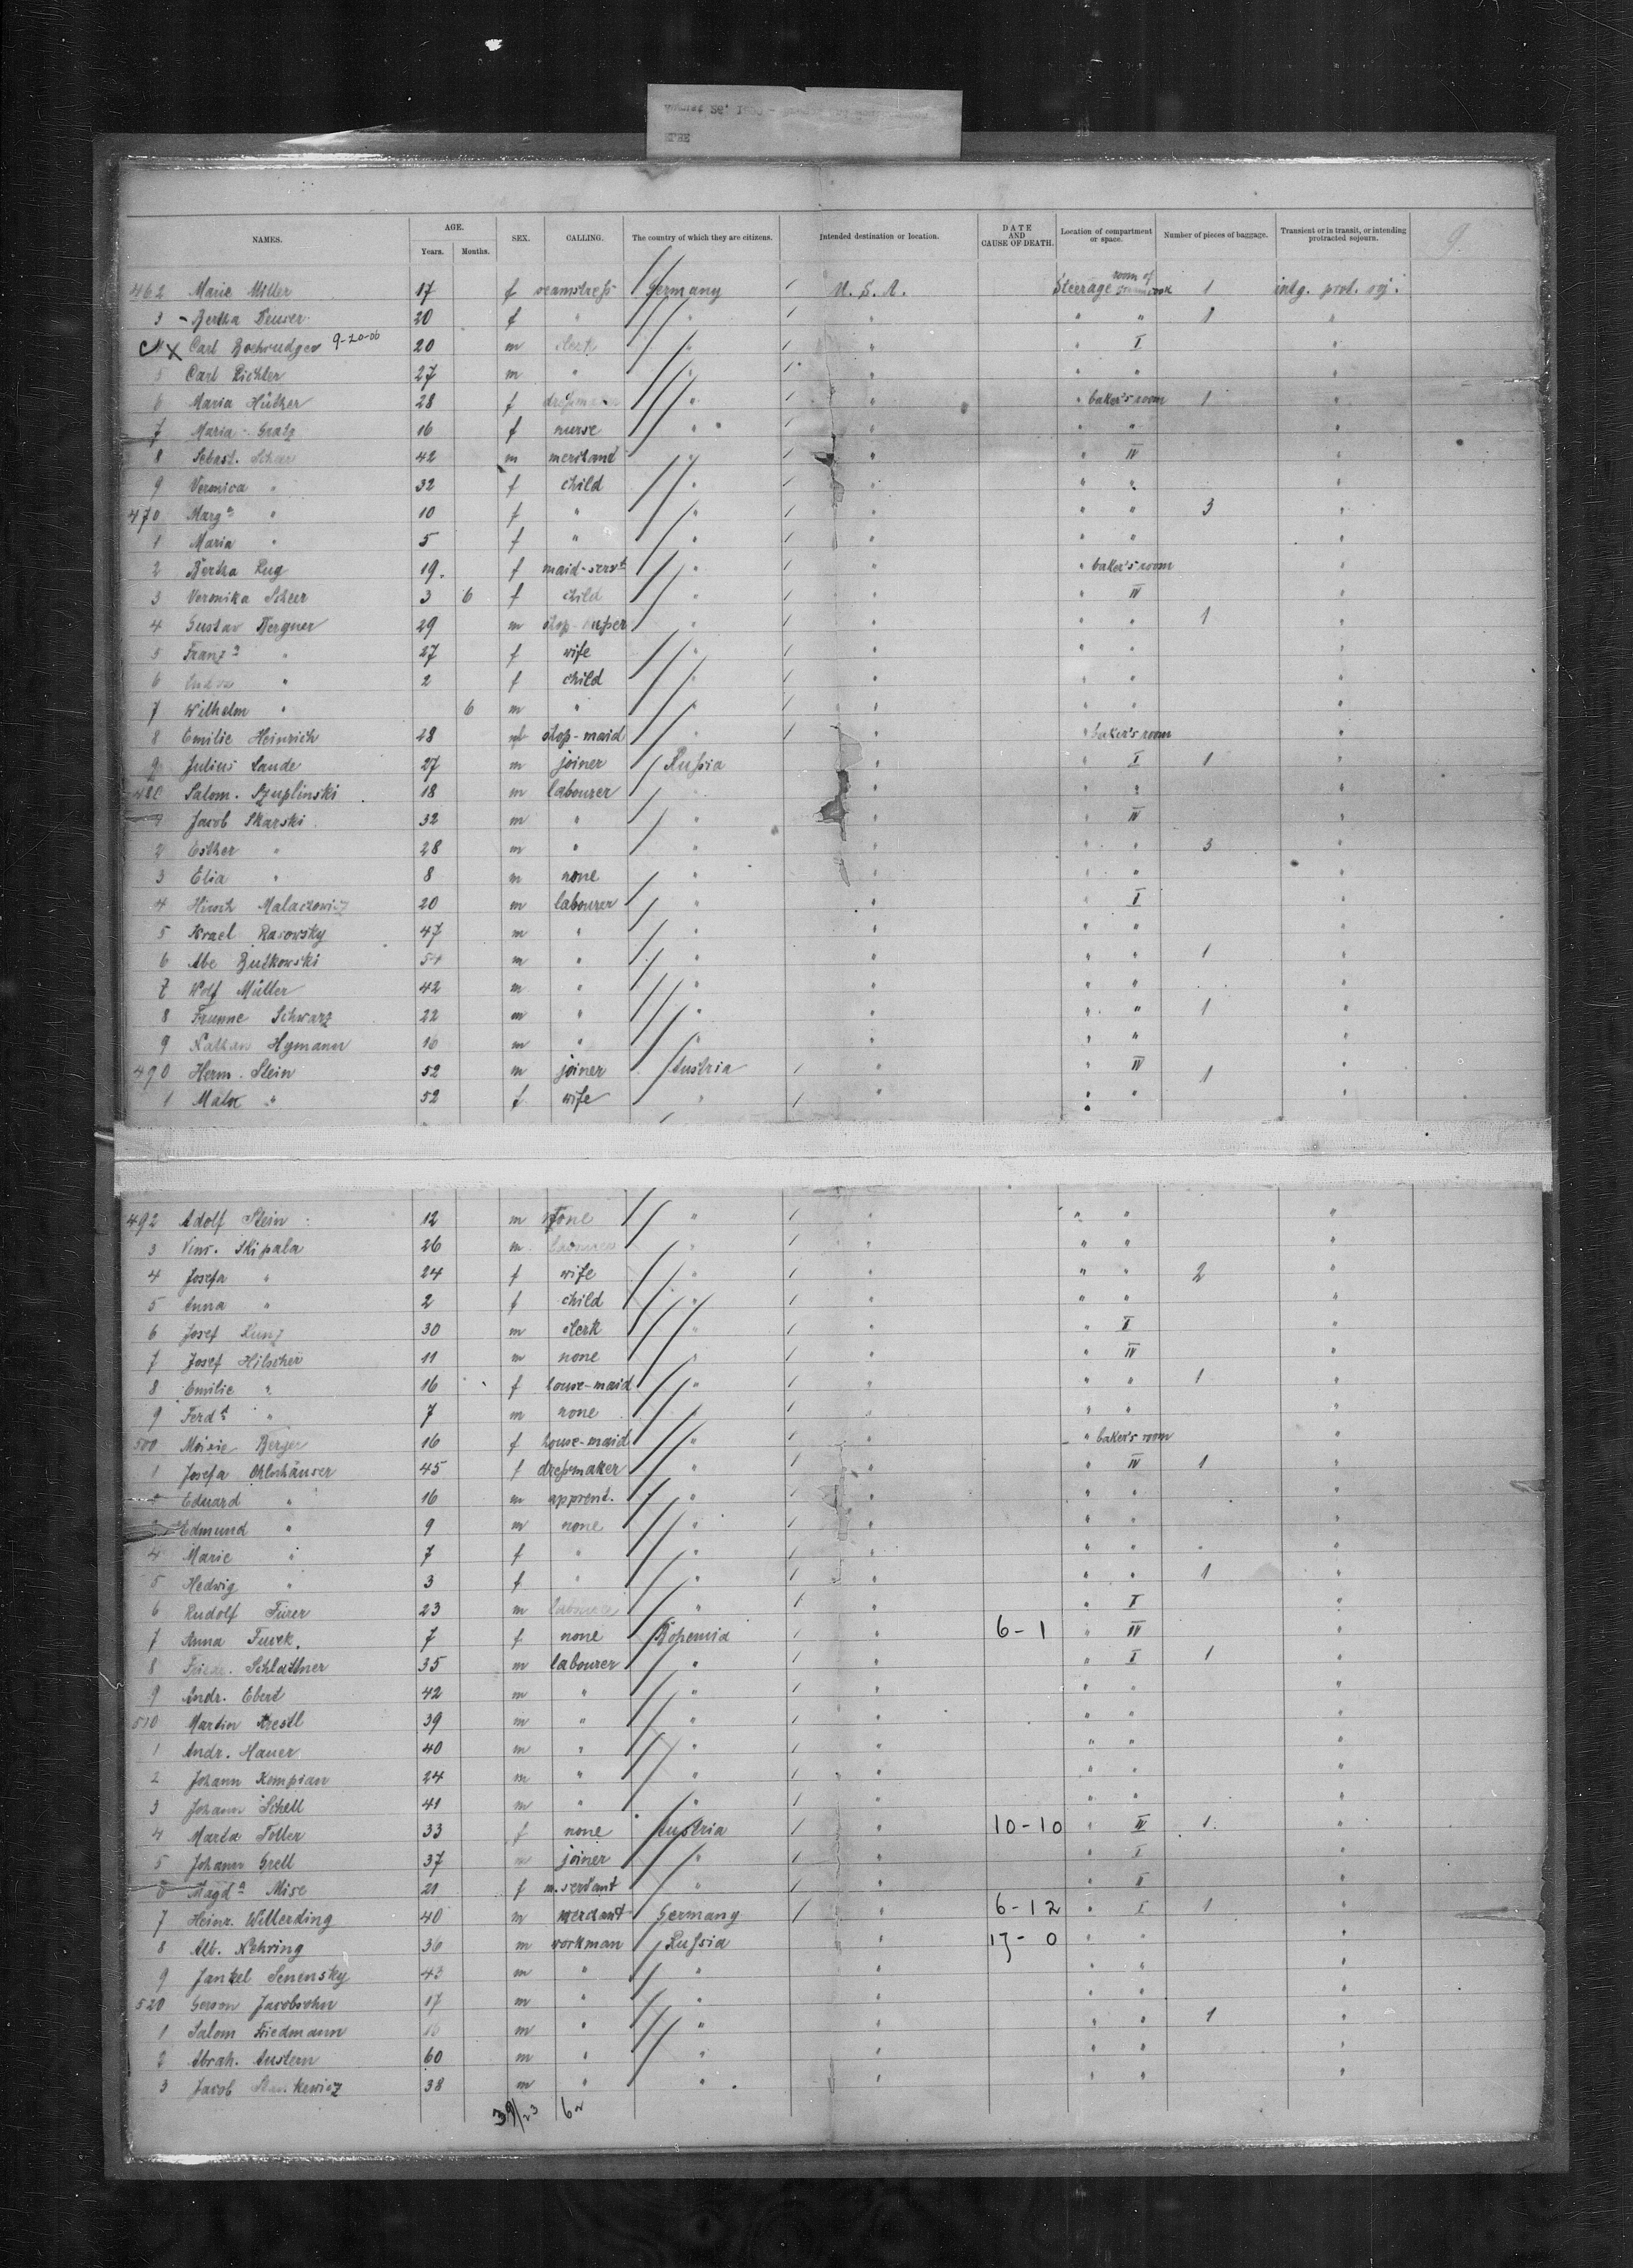 NAMES. AGE. Years. Months. SEX. CALLING. The country of which they are citizens. Intended destination or location. DATE AND CAUSE OF DEATH. Location of compartment or space. Number of pieces of baggage. Transient or in transit, or intending protracted sojourn. 9
462 Marie Miller 17 f seamstress Germany U. S. A. Steerage room of 1 intg. prot. soj.
3 Bertha 20 f " " " " " 1 "
X Carl 9-20-00 20 m clerk " " " I "
5 Carl Richter 27 m " " " " " "
6 Maria Hütker 28 f " " " baker's room 1 "
7 Maria Gratz 16 f nurse " " " " "
8 Sebast. 42 m " " " IV "
9 Veronica " 32 f child " " " " "
470 Marg a " 10 f " " " " " 3 "
1 Maria " 5 f " " " " " "
2 Bertha Rug 19. f maid-servt " " " baker's room "
3 Veronika Scheer 3 6 f child " " " IV "
4 Gustav Bergner 29 m " " " " 1 "
5 Franz a " 27 f wife " " " " "
6 " 2 f child " " " " "
7 Wilhelm " 6 m " " " " " "
8 Emilie Heinrich 28 f shop-maid " " " baker's room "
9 Julius Lande 27 m joiner Russia " " I 1 "
480 Salom. Szuplinski 18 m labourer " " " " "
1 Jacob Skarski 32 m " " " " IV "
2 Esther " 28 m " " " " " 3 "
3 Elia " 8 m none " " " " "
4 Hirsch Malaczowicz 20 m labourer " " " I "
5 Israel Rasowsky 47 m " " " " " "
6 Abe Butkowski 54 m " " " " " 1 "
7 Wolf Müller 42 m " " " " " "
8 Schwarz 22 m " " " " " 1 "
9 Nathan Hymann 16 m " " " " " "
490 Herm. Stein 52 m joiner Austria " " IV 1 "
1 Malx " 52 f wife " " " " "
492 Adolf Stein 12 m none " " " " "
3 Vinc. Skipala 26 m labourer " " " " "
4 Josefa " 24 f wife " " " " 2 "
5 Anna " 2 f child " " " " "
6 Josef Kunz 30 m clerk " " " I "
7 Josef Hilscher 11 m none " " " IV "
8 Emilie " 16 f house-maid " " " " 1 "
9 Ferd d " 7 m none " " " " "
500 Berger 16 f house-maid " " " baker's room "
1 Josefa Ohlschäuser 45 f dressmaker " " " IV 1 "
2 Eduard " 16 m apprent. " " " " "
3 Edmund " 9 m none " " " " "
4 Marie " 7 f " " " " " "
5 Hedwig " 3 f " " " " " 1 "
6 Rudolf Fürer 23 m labourer " " " I "
7 Anna Turek. 7 f none Bohemia " 6-1 " IV "
8 Friedr. Schlattner 35 m labourer " " " I 1 "
9 Andr. Ebert 42 m " " " " " "
510 Martin Krestl 39 m " " " " " "
1 Andr. Hauer 40 m " " " " " "
2 Johann Kompian 24 m " " " " " "
3 Johann Schell 41 m " " " " " "
4 Marta Toller 33 f none Austria " 10-10 " IV 1 "
5 Johann Grell 37 m joiner " " " I "
6 Magd a Mise 21 f m. servant " " " II "
7 Heinr. Willerding 40 m merchant Germany " 6-12 " I 1 "
8 Alb. Nehring 36 m workman Russia " 17-0 " " "
9 Jankel Senensky 43 m " " " " " "
520 Gerson Jacobsohn 17 m " " " " " "
1 Salom Friedmann 16 m " " " " " 1 "
2 Abrah. Austern 60 m " " " " " "
3 Jacob 38 m " " " " " "
39/23 62